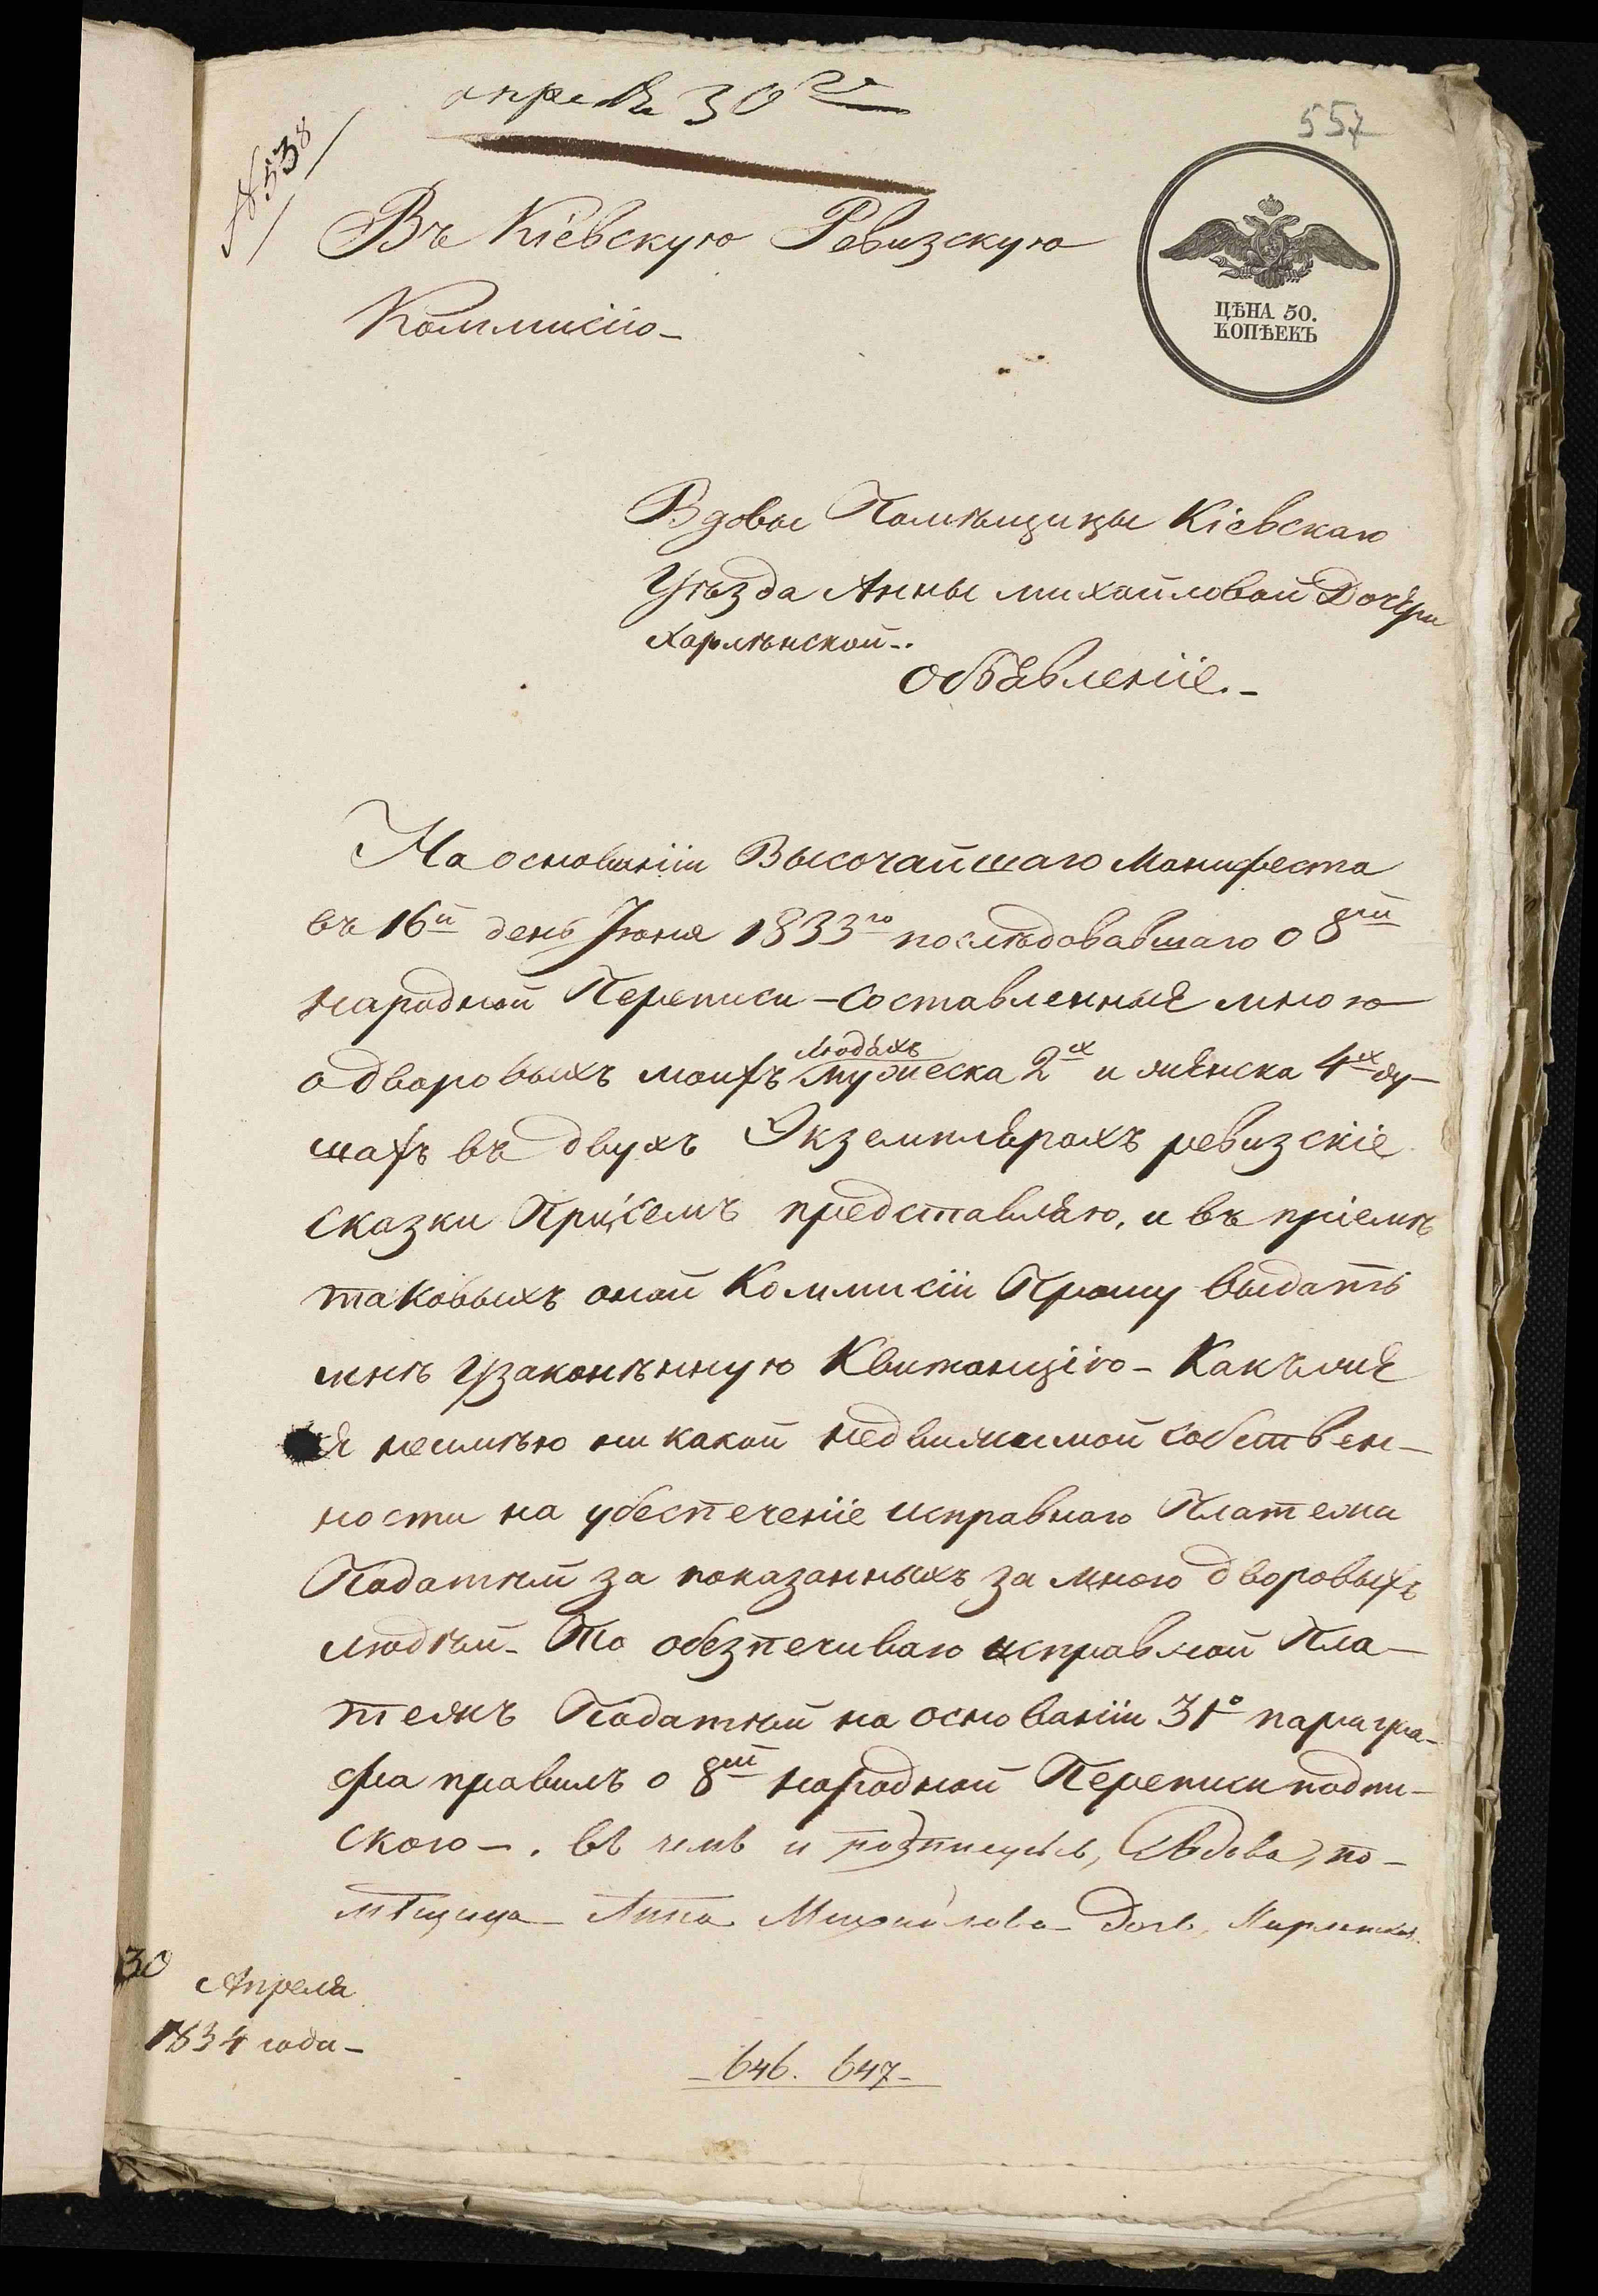 апреля 30го
557
№ 538
Въ Кіевскую Ревизскую
Коммисію-
ЦѢНА 50.
КОПѢЕКЪ
Вдовы Помѣщицы Кіевскаго
Уѣзда Анны михайловой Дочери
объявленіе.-
На основаніи Высочайшаго Манифеста
въ 16й день Іюня 1833го послѣдовавшаго о 8мй
народной Переписи - составленныя мною
людяхъ
о дворовыхъ моихъ мужеска 2х и женска 4х ду-
шахъ въ двухъ Экземплярахъ ревизскіе
сказки При семъ представляю, и въ пріемѣ
таковыхъ оной Коммисіи Прошу выдать
мнѣ Узаконѣнную Квитанцію - Какъ же
я неимѣю ни какой недвижимой собствен-
ности на убеспеченіе исправнаго Платежа
Податѣй за показанныхъ за мною дворовыхъ
людѣй - То обезпечиваю исправной Пла-
тежъ Податѣй на основаніи 31о парагра-
фа правилъ о 8мй народной Переписи подпи-
скою -. въ чемъ и подписуюсь, Вдова, по-
мѣщица Анна Михайлова дочь,
30 Апреля
1834 года -
- 646. 647 -